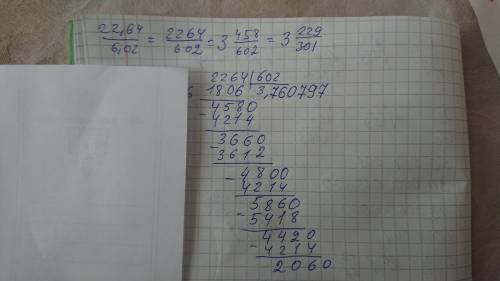 22,64/6,02 = 2264/602 = 3 458/602 = 3 229/301
2264 | 602
1806 3,760797
4580
- 4214
- 3660
3612
- 4800
4214
5860
- 5418
4420
- 4214
2060